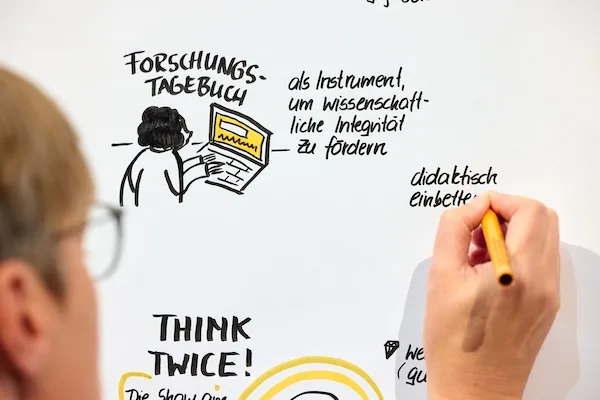 FORSCHUNGS-
TAGEBUCH
als Instrument,
um wissenschaft-
liche Integrität
zu fördern
didaktisch
THINK
TWICE!
Die Show